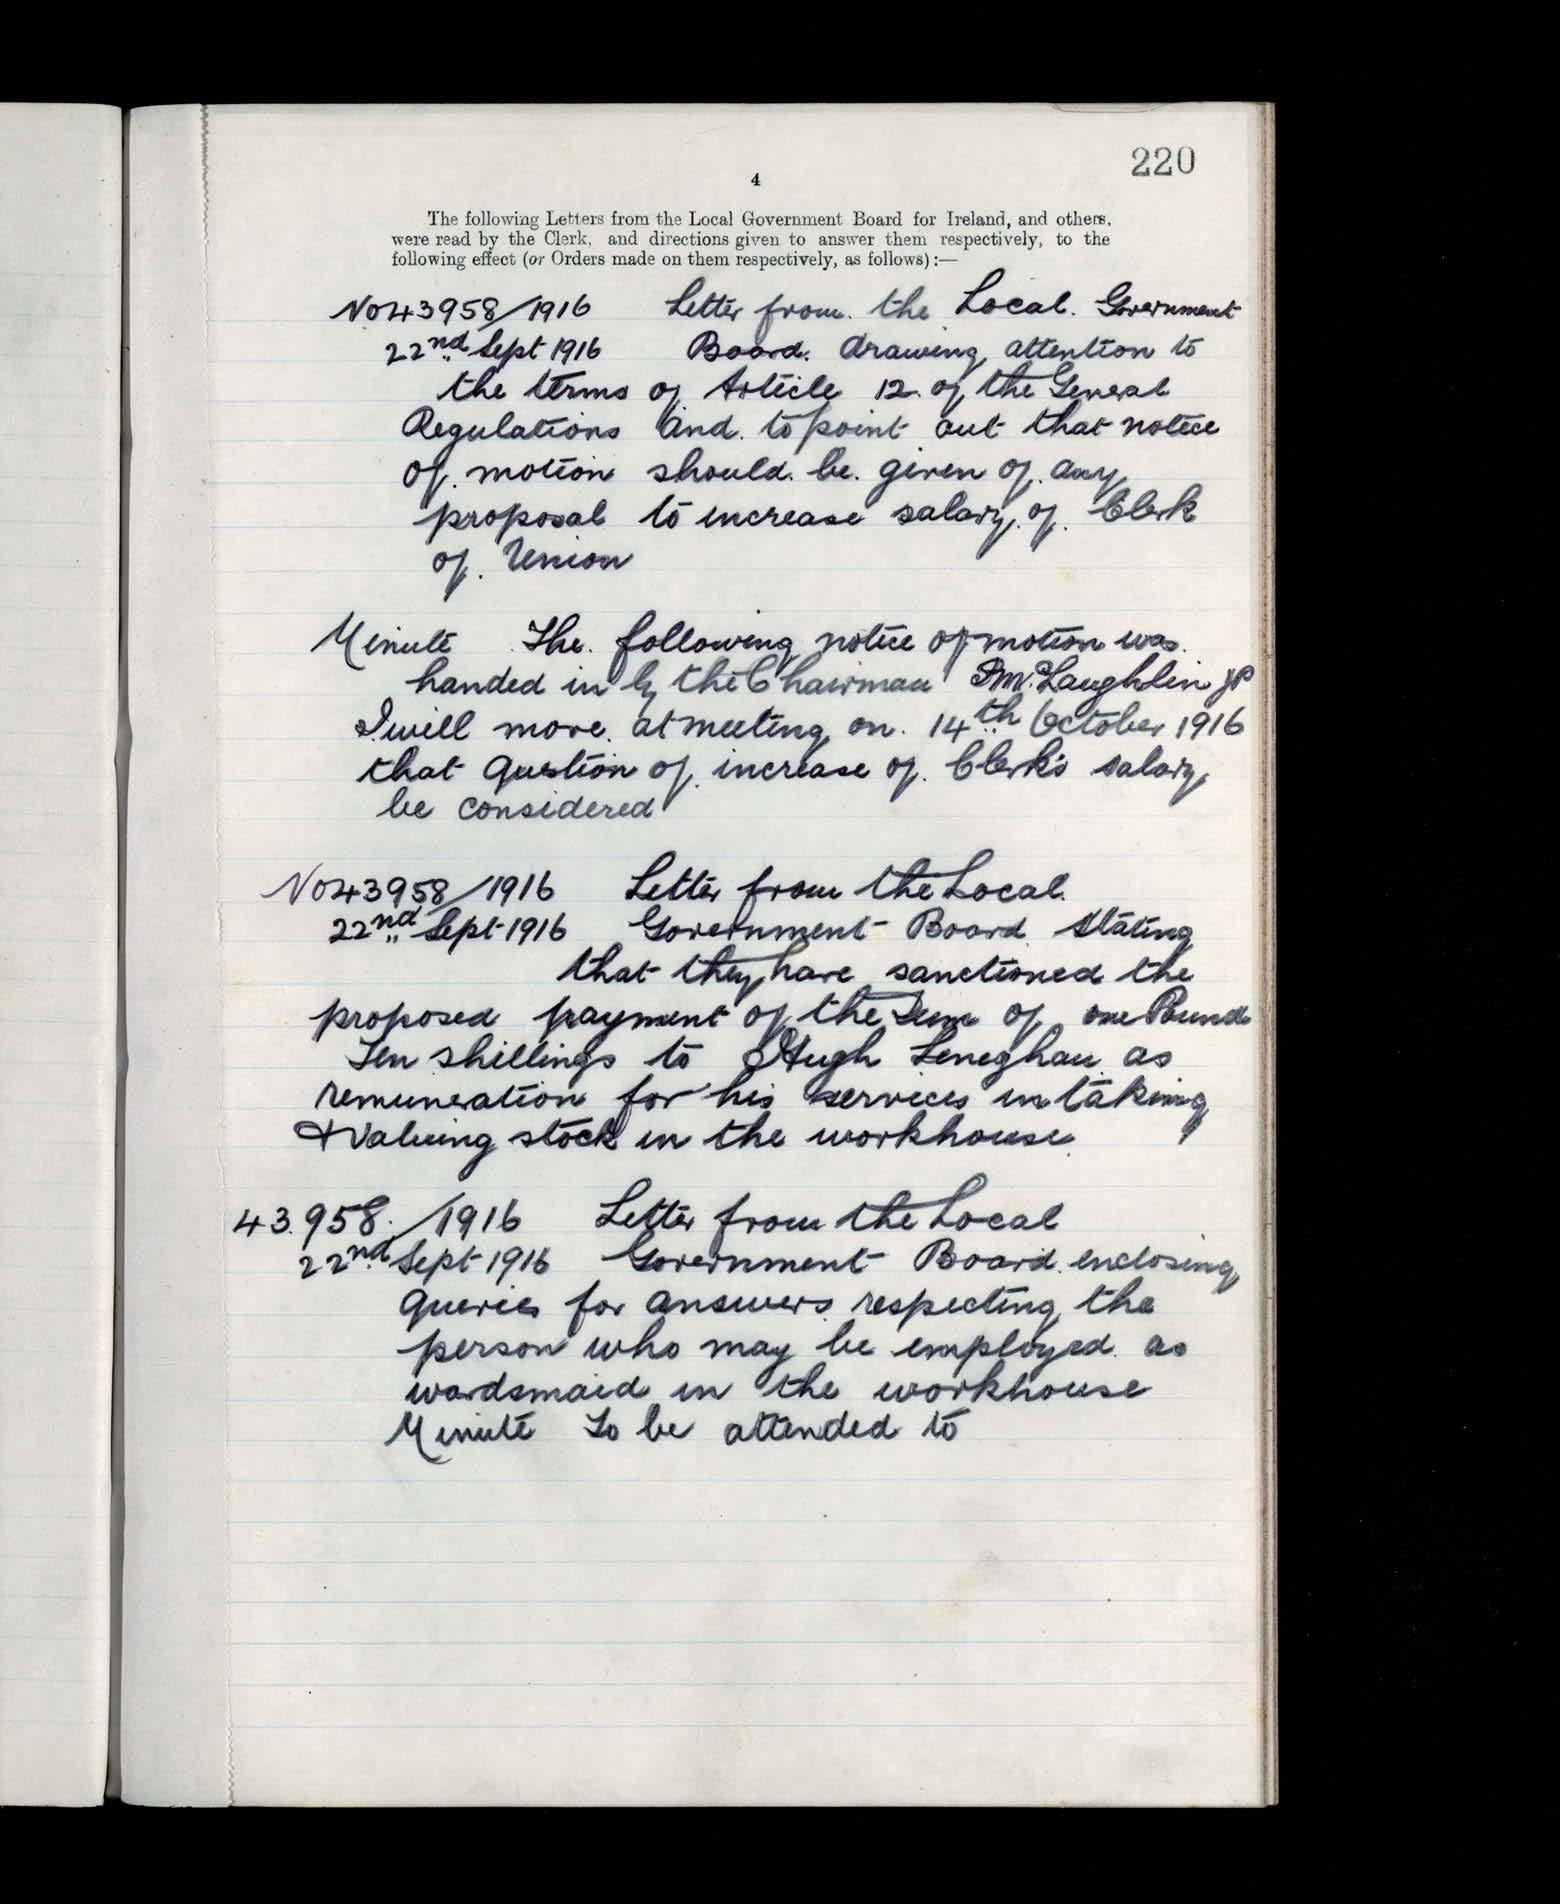 220
4
The following Letters from the Local Government Board for Ireland, and others,
were read by the Clerk, and directions given to answer them respectively, to the
following effect (or Orders made on them respectively, as follows):—
No 43958/1916 Letter from the Local Government
22nd Sept 1916 Board drawing attention to
the terms of Article 12 of the General
Regulations and to point out that notice
of motion should be given of any
proposal to increase salary of Clerk
of Union
Minute The following notice of motion was
handed in by the Chairman McLaughlin JP
I will move at meeting on 14th October 1916
that question of increase of Clerk's salary
be considered
No 43958/1916 Letter from the Local
22nd Sept 1916 Government Board stating
that they have sanctioned the
proposed payment of the sum of one Pound
Ten shillings to Hugh Leneghan as
remuneration for his services in taking
& Valuing stock in the workhouse
43.958./1916 Letter from the Local
22nd Sept 1916 Government Board enclosing
queries for answers respecting the
person who may be employed as
wardsmaid in the workhouse
Minute To be attended to